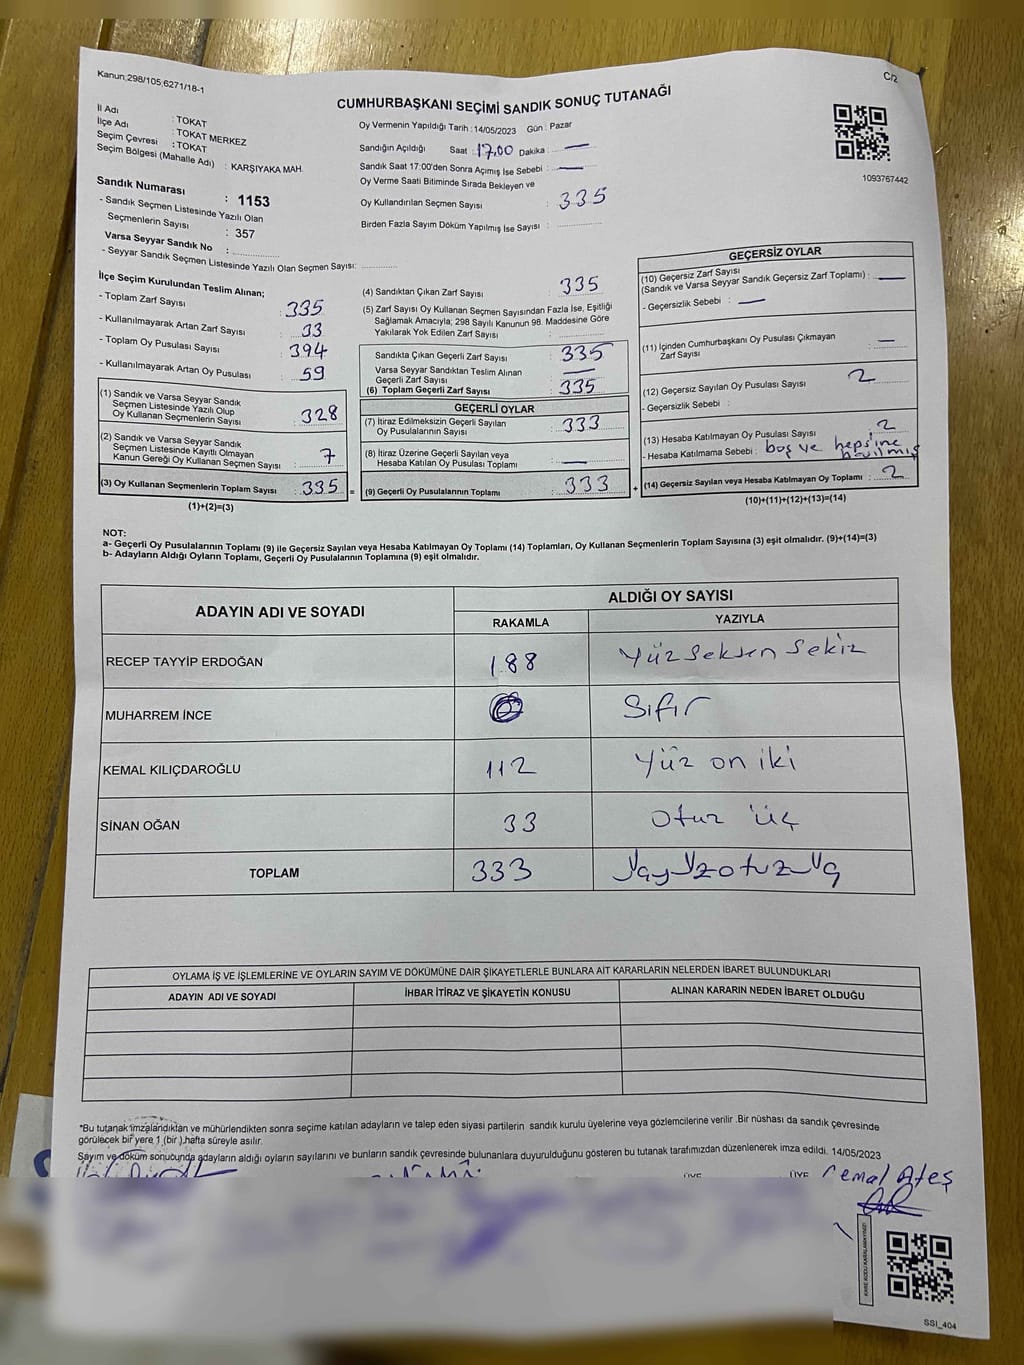 Kanun;298/105;6271/18-1
C/2
CUMHURBAŞKANI SEÇİMİ SANDIK SONUÇ TUTANAĞI
İl Adı : TOKAT
İlçe Adı : TOKAT MERKEZ
Seçim Çevresi : TOKAT
Seçim Bölgesi (Mahalle Adı) : KARŞIYAKA MAH.
Sandık Numarası : 1153
- Sandık Seçmen Listesinde Yazılı Olan
Seçmenlerin Sayısı : 357
Varsa Seyyar Sandık No :
- Seyyar Sandık Seçmen Listesinde Yazılı Olan Seçmen Sayısı:
Oy Vermenin Yapıldığı Tarih : 14/05/2023 Gün : Pazar
Sandığın Açıldığı Saat : 17,00 Dakika : —
Sandık Saat 17:00'den Sonra Açımış İse Sebebi : —
Oy Verme Saati Bitiminde Sırada Bekleyen ve
Oy Kullandırılan Seçmen Sayısı : 335
Birden Fazla Sayım Döküm Yapılmış İse Sayısı :
1093767442
İlçe Seçim Kurulundan Teslim Alınan;
- Toplam Zarf Sayısı : 335
- Kullanılmayarak Artan Zarf Sayısı : 33
- Toplam Oy Pusulası Sayısı : 394
- Kullanılmayarak Artan Oy Pusulası : 59
(1) Sandık ve Varsa Seyyar Sandık
Seçmen Listesinde Yazılı Olup
Oy Kullanan Seçmenlerin Sayısı : 328
(2) Sandık ve Varsa Seyyar Sandık
Seçmen Listesinde Kayıtlı Olmayan
Kanun Gereği Oy Kullanan Seçmen Sayısı : 7
(3) Oy Kullanan Seçmenlerin Toplam Sayısı : 335 =
(1)+(2)=(3)
(4) Sandıktan Çıkan Zarf Sayısı : 335
(5) Zarf Sayısı Oy Kullanan Seçmen Sayısından Fazla İse, Eşitliği
Sağlamak Amacıyla; 298 Sayılı Kanunun 98. Maddesine Göre
Yakılarak Yok Edilen Zarf Sayısı :
Sandıkta Çıkan Geçerli Zarf Sayısı : 335
Varsa Seyyar Sandıktan Teslim Alınan
Geçerli Zarf Sayısı : —
(6) Toplam Geçerli Zarf Sayısı : 335
GEÇERLİ OYLAR
(7) İtiraz Edilmeksizin Geçerli Sayılan
Oy Pusulalarının Sayısı : 333
(8) İtiraz Üzerine Geçerli Sayılan veya
Hesaba Katılan Oy Pusulası Toplamı : —
(9) Geçerli Oy Pusulalarının Toplamı : 333 +
GEÇERSİZ OYLAR
(10) Geçersiz Zarf Sayısı
(Sandık ve Varsa Seyyar Sandık Geçersiz Zarf Toplamı) : —
- Geçersizlik Sebebi : —
(11) İçinden Cumhurbaşkanı Oy Pusulası Çıkmayan
Zarf Sayısı : —
(12) Geçersiz Sayılan Oy Pusulası Sayısı : 2
- Geçersizlik Sebebi :
(13) Hesaba Katılmayan Oy Pusulası Sayısı : 2
- Hesaba Katılmama Sebebi : boş ve hepsine
(14) Geçersiz Sayılan veya Hesaba Katılmayan Oy Toplamı : 2
(10)+(11)+(12)+(13)=(14)
NOT:
a- Geçerli Oy Pusulalarının Toplamı (9) ile Geçersiz Sayılan veya Hesaba Katılmayan Oy Toplamı (14) Toplamları, Oy Kullanan Seçmenlerin Toplam Sayısına (3) eşit olmalıdır. (9)+(14)=(3)
b- Adayların Aldığı Oyların Toplamı, Geçerli Oy Pusulalarının Toplamına (9) eşit olmalıdır.
ADAYIN ADI VE SOYADI
ALDIĞI OY SAYISI
RAKAMLA YAZIYLA
RECEP TAYYİP ERDOĞAN 188 Yüz seksen sekiz
MUHARREM İNCE 0 Sıfır
KEMAL KILIÇDAROĞLU 112 Yüz on iki
SİNAN OĞAN 33 Otuz üç
TOPLAM 333 üçyüzotuzüç
OYLAMA İŞ VE İŞLEMLERİNE VE OYLARIN SAYIM VE DÖKÜMÜNE DAİR ŞİKAYETLERLE BUNLARA AİT KARARLARIN NELERDEN İBARET BULUNDUKLARI
ADAYIN ADI VE SOYADI İHBAR İTİRAZ VE ŞİKAYETİN KONUSU ALINAN KARARIN NEDEN İBARET OLDUĞU
*Bu tutanak imzalandıktan ve mühürlendikten sonra seçime katılan adayların ve talep eden siyasi partilerin sandık kurulu üyelerine veya gözlemcilerine verilir .Bir nüshası da sandık çevresinde
görülecek bir yere 1 (bir ) hafta süreyle asılır.
Sayım ve döküm sonucunda adayların aldığı oyların sayılarını ve bunların sandık çevresinde bulunanlara duyurulduğunu gösteren bu tutanak tarafımızdan düzenlenerek imza edildi. 14/05/2023
ÜYE ÜYE Cemal Ateş
SSI_404